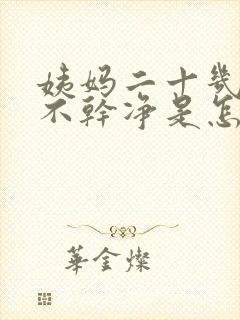 姨妈二十幾
不幹净是怎
華金燦